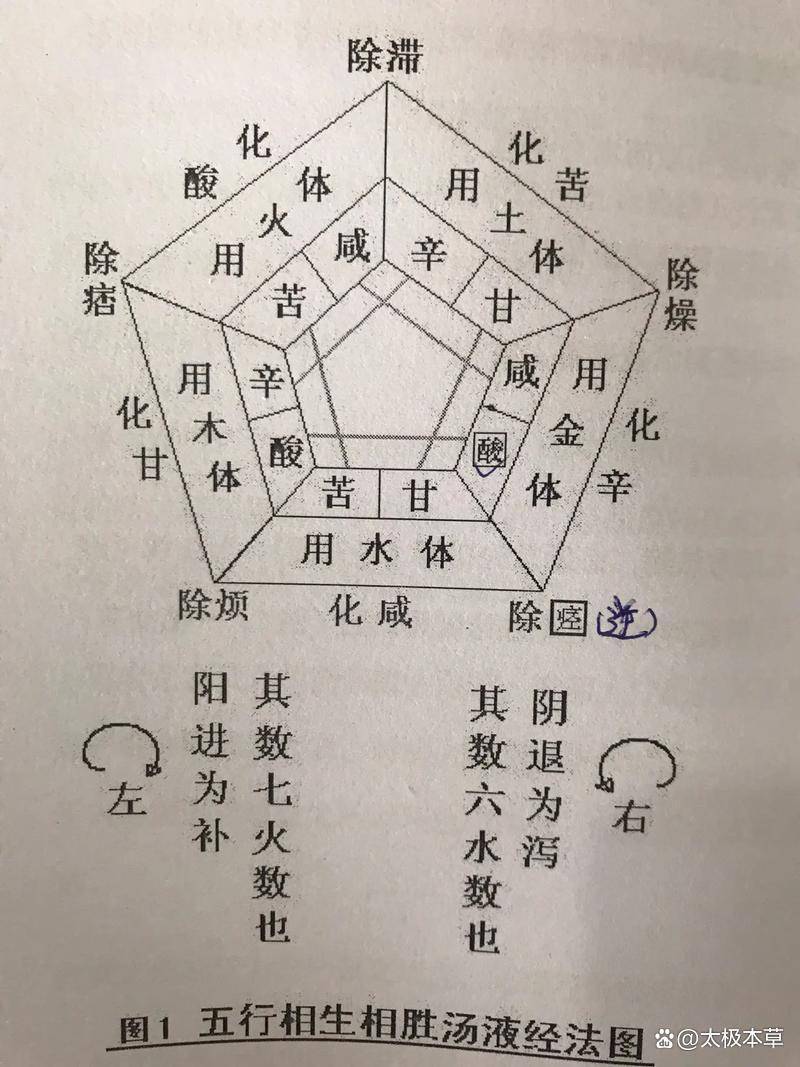 除滞
化酸
化苦
体火用
用土体
咸
辛
苦
甘
除痞
除燥
辛
咸
用木体
用金体
化甘
化辛
酸
酸
苦
甘
用水体
除烦
化咸
除痉(逆)
左
阳进为补
其数七火数也
其数六水数也
阴退为泻
右
图1 五行相生相胜汤液经法图
Baidu @太极本草